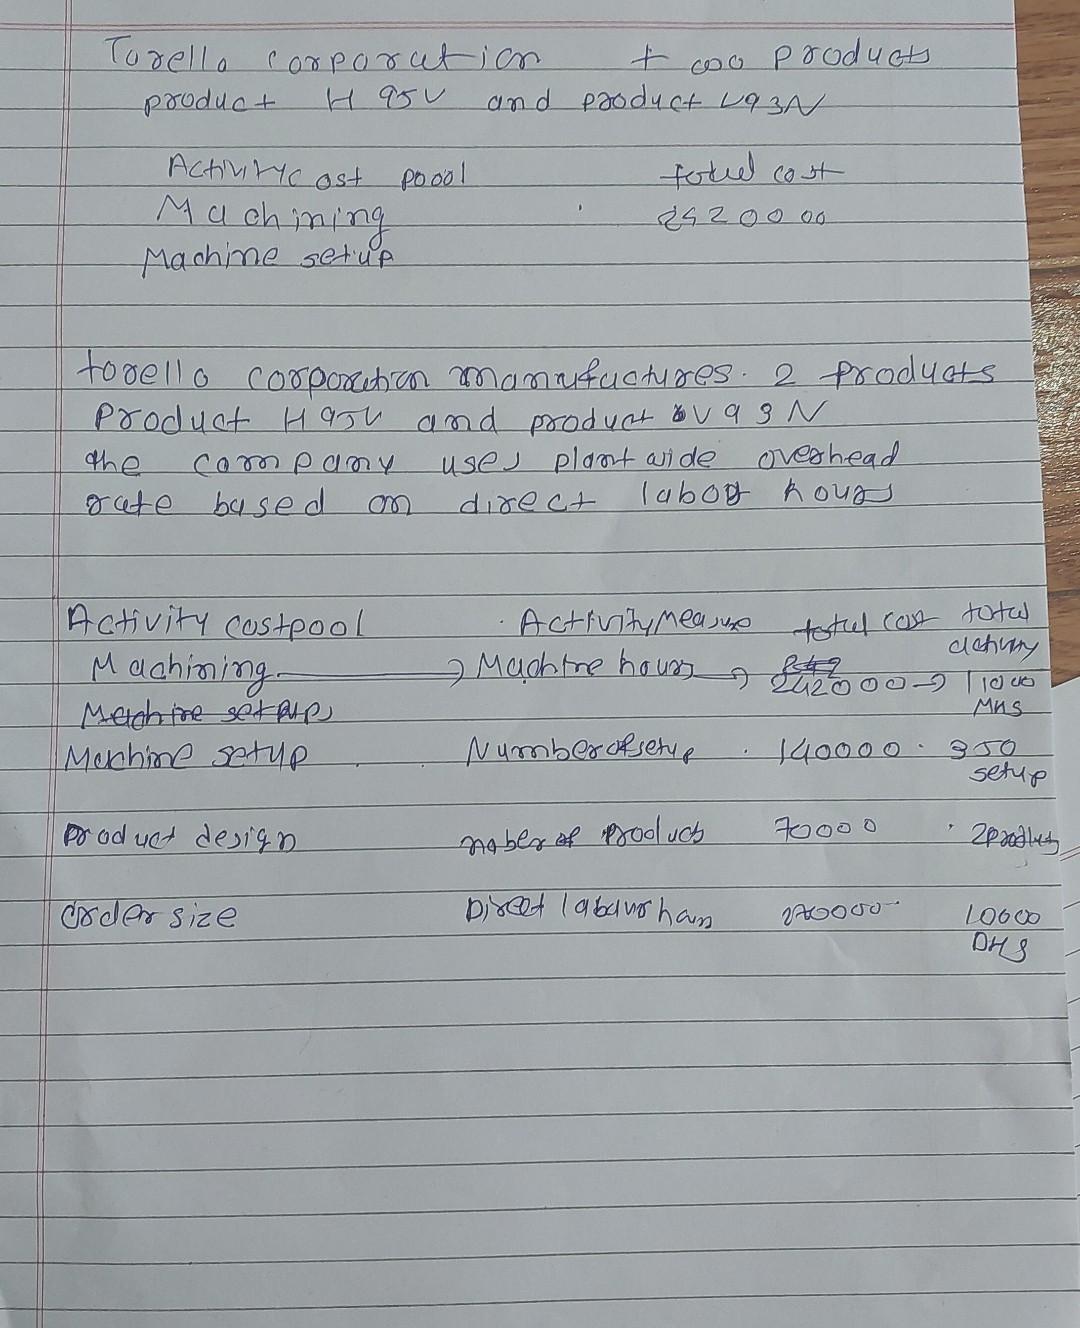 Torello corporation two products
product H 95V and product V93N
Activity cost poool total cost
Machining 2420000
Machine setup
torello corporation manufactures. 2 products
Product H95V and product V93N
the company uses plant wide overhead
rate based on direct labor hours
Activity costpool Activity Measure total cost total activity
Machining → Machine hours → 242000 → 11000 MHS
Machine setup
Machine setup Number of setup . 140000 . 350 setup
product design naber of products 70000 2products
order size Direct labour hours 10000 DHS